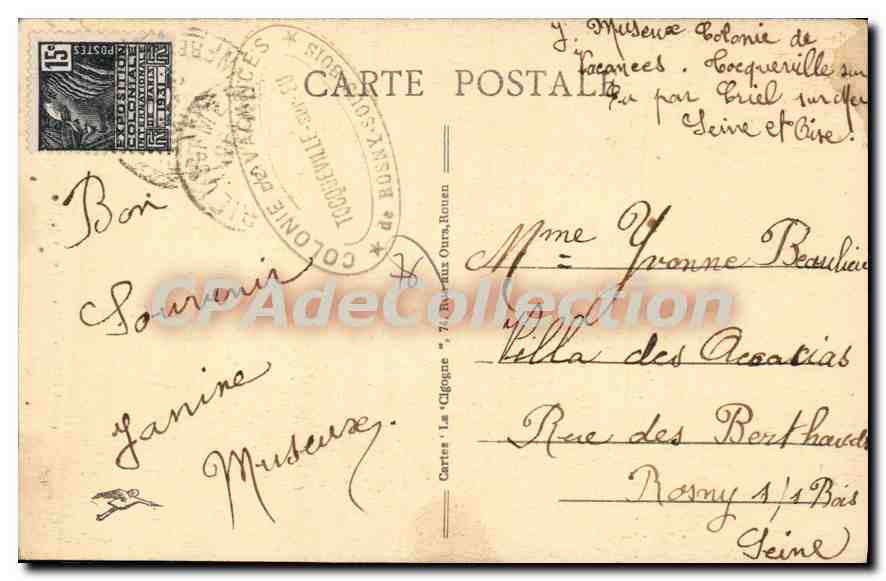 CARTE POSTALE
J. Museux Colonie de
Vacances. Tocqueville sur
Eu par Criel sur Mer
Seine et Oise.
15c
POSTES
EXPOSITION
COLONIALE
INTERNATIONALE
DE PARIS
1931
COLONIE de VACANCES ★ de ROSNY-SOUS-BOIS ★
TOCQUEVILLE-sur-EU
Bon
Souvenir
Janine
Museux.
Cartes "La Cigogne", 74, Rue aux Ours, Rouen
Mme Yvonne Beaulieu
Villa des Acacias
Rue des Berthauds
Rosny s/s Bois
Seine
CPAdeCollection